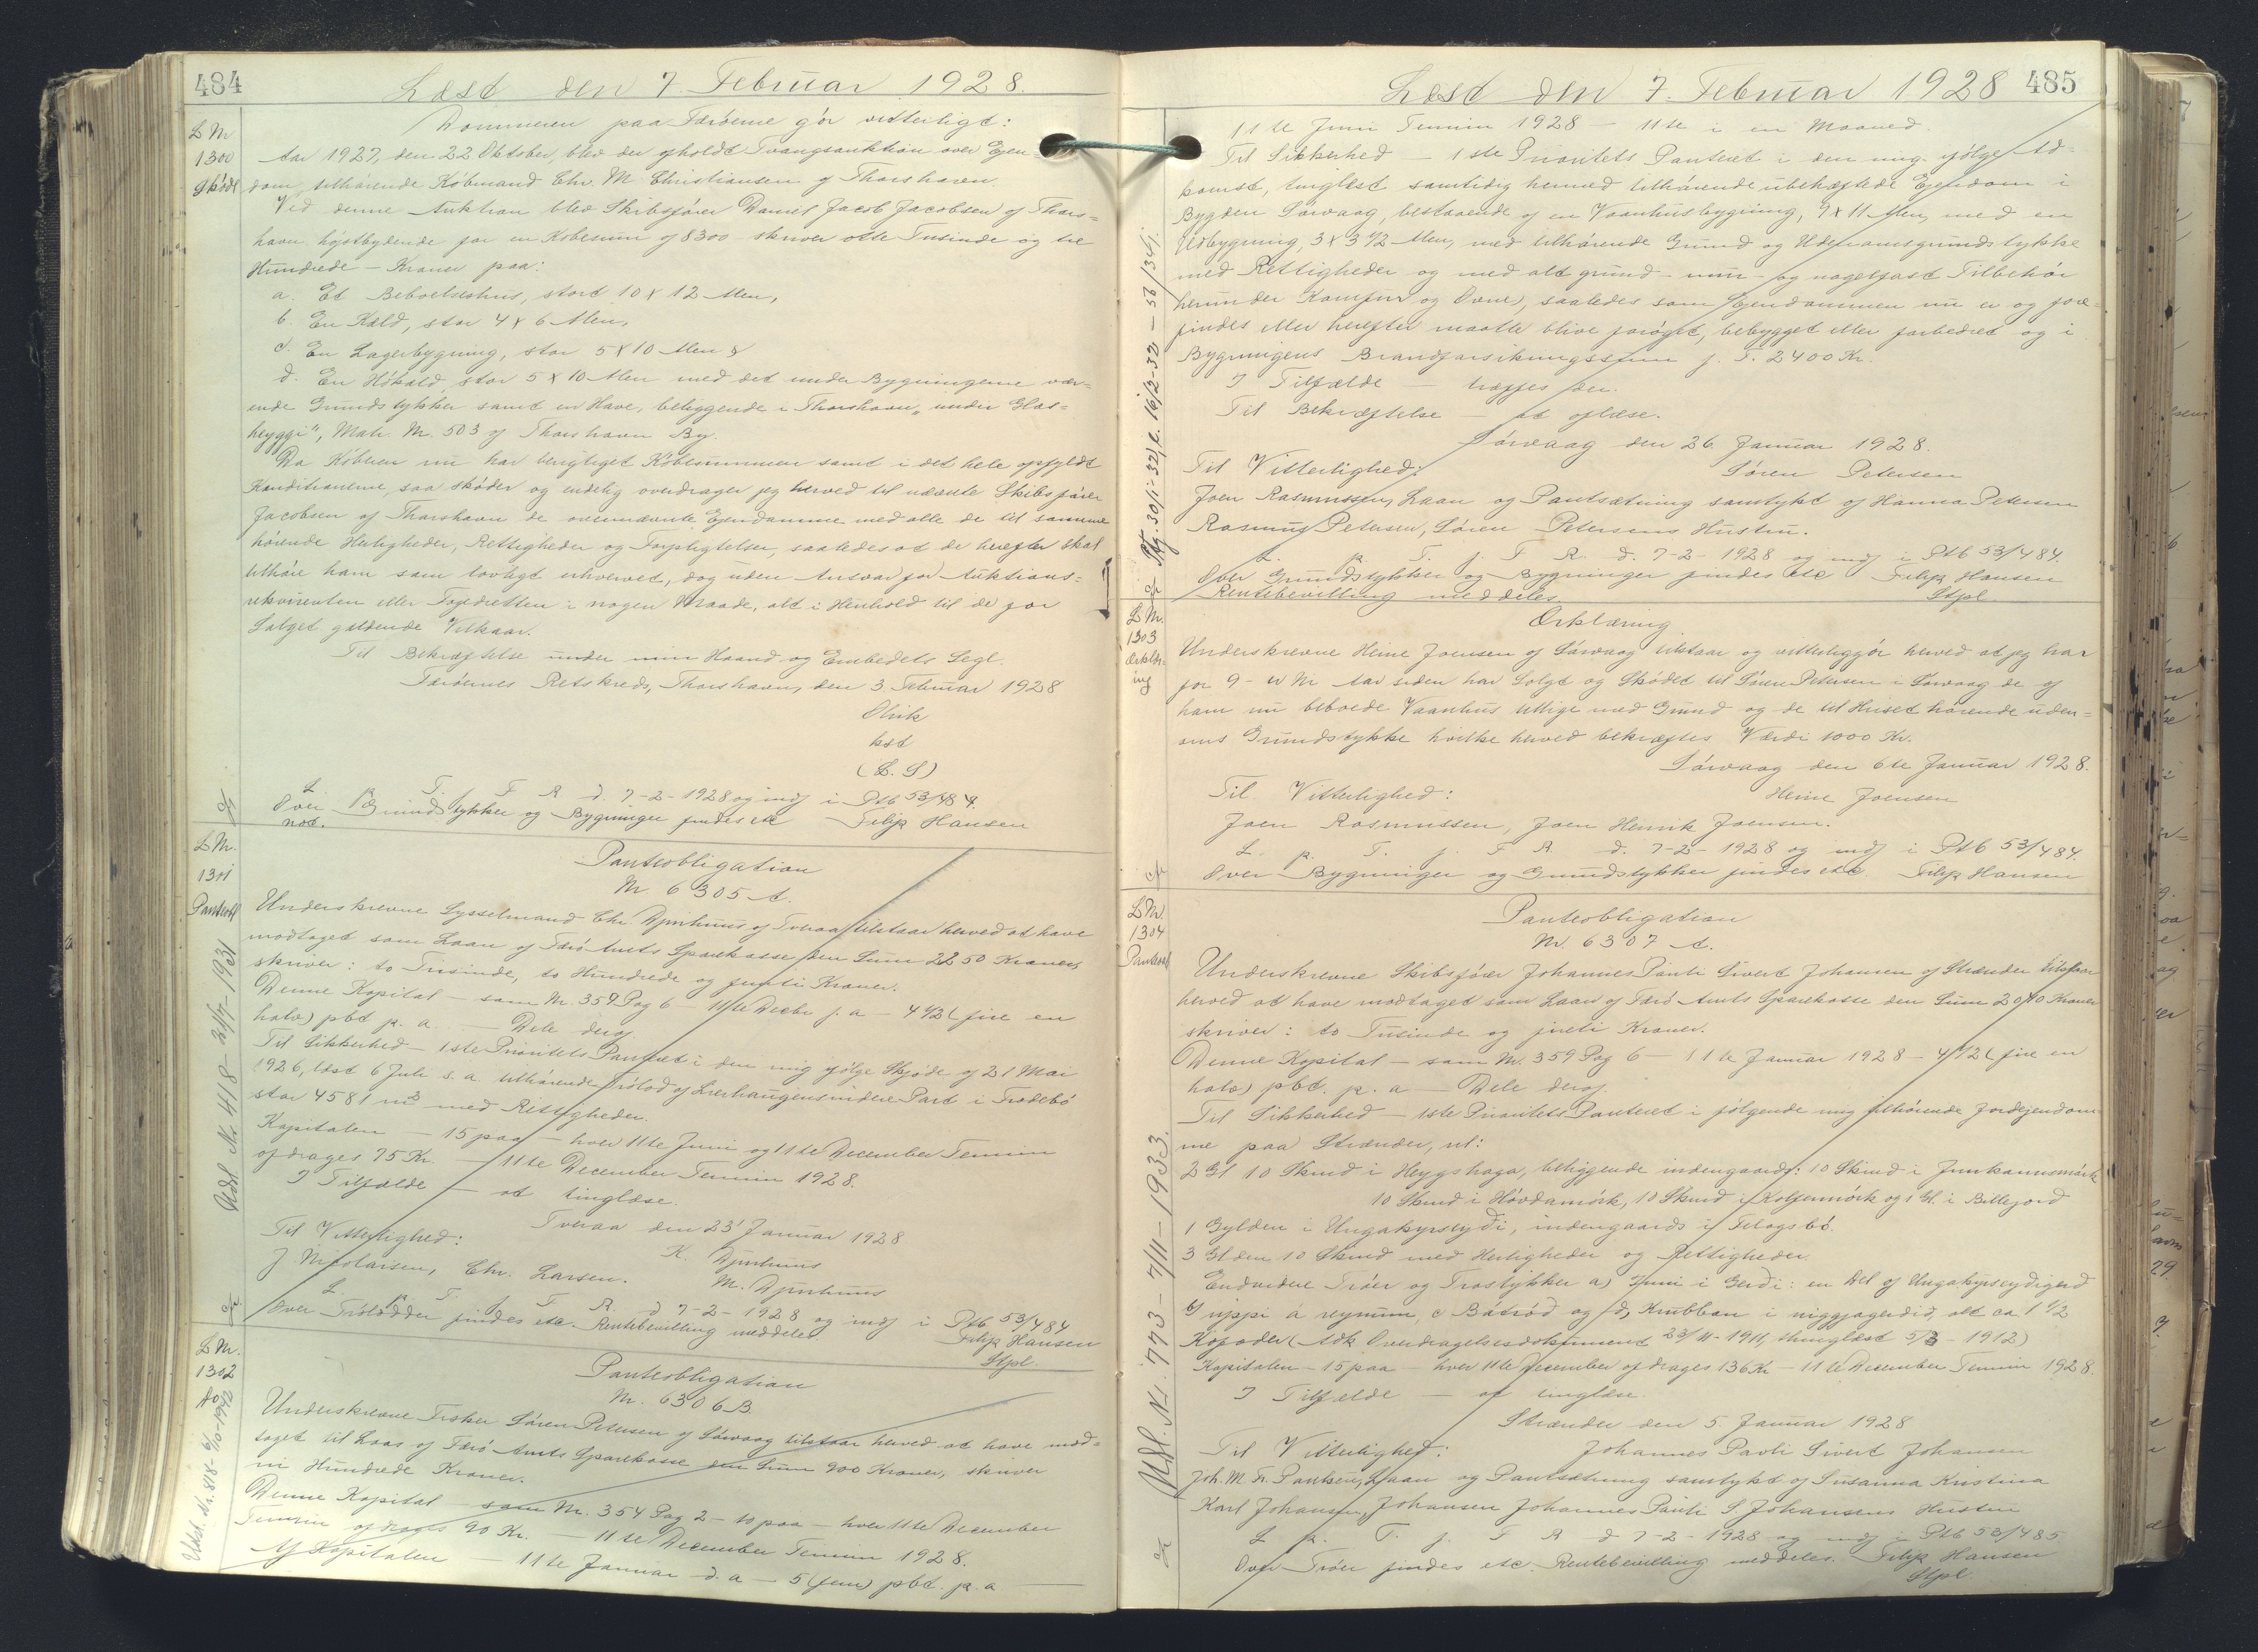 484
Læst den 7. Februar 1928.
L Nr
1300
Skøde
Dommeren paa Færøerne gør vitterligt:
Aar 1927, den 22 Oktober, blev der afholdt Tvangsauktion over Ejen=
dom, tilhørende Købmand Chr. M Christiansen af Thorshavn.
Ved denne Auktion blev Skibsfører Daniel Jacob Jacobsen af Thors=
havn højstbydende for en Købesum af 8300 skriver otte Tusinde og tre
Hundrede - Kroner paa:
a. Et Beboelseshus, stort 10 x 12 Alen,
b. En Kæld, stor 4 x 6 Alen,
c. En Lagerbygning, stor 5 x 10 Alen &
d. En Høkæld, stor 5 x 10 Alen med det under Bygningerne vær=
ende Grundstykker samt en Have, beliggende i Thorshavn, "under Glas=
heyggi", Matr. Nr. 503 af Thorshavn By.
Da Køberen nu har berigtiget Købesummen samt i det hele opfyldt
Konditionerne, saa skøder og endelig overdrager jeg herved til nævnte Skibsfører
Jacobsen af Thorshavn de ovennævnte Ejendomme med alle de til samme
hørende Herligheder, Rettigheder og Forpligtelser, saaledes at de herefter skal
tilhøre ham som lovligt erhvervet, dog uden Ansvar for Auktions=
rekvirenten eller Fogedretten i nogen Maade, alt i Henhold til de for
Salget gældende Vilkaar.
Til Bekræftelse under min Haand og Embedets Segl.
Færøernes Retskreds, Thorshavn, den 3. Februar 1928
Olrik
kst
(L. S)
L. p. T. f. F R d. 7-2-1928 og indf i Ptb 53/484.
Over Grundstykker og Bygninger findes etc Filip Hansen
not.
L Nr.
1301
Panteobl
Udsl. Nr. 418 - 21/7 - 1931
Panteobligation
Nr. 6305 A.
Underskrevne Sysselmand Chr. Djurhuus af Tveraa tilstaar herved at have
modtaget som Laan af Færø Amts Sparekasse den Sum 2250 Kroner,
skriver: to Tusinde, to Hundrede og femti Kroner.
Denne Kapital - som Nr. 359 Pag 6 - 11te Decbr f. a - 4 1/2 (fire en
halv) pct p. a. - Dele deraf.
Til Sikkerhed - 1ste Prioritets Panteret i den mig ifølge Skjøde af 21 Mai
1926, læst 6 Juli s. a. tilhørende Trølod af Lverhaugens indere Part i Trodebø
stor 4581 m² med Rettigheder.
Kapitalen - 15 paa - hver 11te Juni og 11te December Termin
afdrages 75 Kr. - 11te December Termin 1928.
I Tilfælde - at tinglæse.
Tveraa den 23' Januar 1928
Til Vitterlighed:
K. Djurhuus
J. Nicolaisen, Chr. Larsen.
M. Djurhuus
L. p. T. f. F. R. d 7-2-1928 og indf i Ptb 53/484
Over Trølodder findes etc. Rentebevilling meddeles Filip Hansen
Stpl.
L Nr.
1302
do
Udsl. Nr. 818 - 6/10 - 1942
Panteobligation
Nr. 6306 B.
Underskrevne Fisker Søren Petersen af Sørvaag tilstaar herved at have mod=
taget til Laan af Færø Amts Sparekasse den Sum 900 Kroner, skriver
ni Hundrede Kroner.
Denne Kapital - som Nr. 354 Pag 2 - 10 paa - hver 11te December
Termin afdrages 90 Kr. - 11te December Termin 1928.
Af Kapitalen - 11te Januar d. a - 5 (fem) pct. p. a
485
Læst den 7. Februar 1928
11te Juni Termin 1928 - 11te i en Maaned.
Til Sikkerhed - 1ste Prioritets Panteret i den mig ifølge Ad=
komst, tinglæst samtidig hermed tilhørende ubehæftede Ejendom i
Bygden Sørvaag, bestaaende af en Vaanhusbygning, 9 x 11 Alen, med en
Udbygning, 3 x 3 1/2 Alen, med tilhørende Grund og Udenomsgrundstykke
med Rettigheder og med alt grund- mur- og nagelfast Tilbehør
herunder Komfur og Ovne), saaledes som Ejendommen nu er og fore=
findes eller herefter maatte blive forøget, bebygget eller forbedret og i
Bygningens Brandforsikringssum f. T. 2400 Kr.
I Tilfælde - træffes der.
Til Bekræftelse - at oplæse.
Sørvaag den 26. Januar 1928.
Til Vitterlighed:
Søren Petersen
Joen Rasmussen, Laan og Pantsætning samtykt af Hanna Petersen
Rasmus Petersen, Søren Petersens Hustru.
L. p. T. f. F R. d. 7-2-1928 og indf i Ptb 53/484.
Over Grundstykker og Bygninger findes etc Filip Hansen
Rentebevilling meddeles. Stpl.
L Nr.
1303
Erklær=
ing
Erklæring
Underskrevne Heine Joensen af Sørvaag tilstaar og vitterliggør herved at jeg har
for 9- ti Aar siden har Solgt og Skødet til Søren Petersen i Sørvaag de af
ham nu beboede Vaanhus tillige med Grund og de til Huset hørende uden=
oms Grundstykke hvilke herved bekræftes Værdi 1000 Kr.
Sørvaag den 6te Januar 1928.
Til Vitterlighed:
Heine Joensen
Joen Rasmussen, Joen Henrik Joensen.
L. p. T. f. F R. d. 7-2-1928 og indf i Ptb 53/484.
Over Bygninger og Grundstykker findes etc. Filip Hansen
L Nr.
1304
Panteobl
Udsl. Nr. 773 - 7/11 - 1933.
Panteobligation
Nr. 6307 A.
Underskrevne Skibsfører Johannes Pauli Sivert Johansen af Strænder tilstaar
herved at have modtaget som Laan af Færø Amts Sparekasse den Sum 2040 Kroner
skriver: to Tusinde og fireti Kroner.
Denne Kapital - som Nr. 359 Pag 6 - 11te Januar 1928 - 4 1/2 (fire en
halv) pct. p. a - Dele deraf.
Til Sikkerhed - 1ste Prioritets Panteret i følgende mig tilhørende Jordejendom=
me paa Strænder, nl:
2 Gl 10 Skind i Heygshaga, beliggende indengaards: 10 Skind i Junkarinsmørk
10 Skind i Høvdamørk, 10 Skind i Kolfinmørk og 1 Gl. i Billejord
1 Gylden i Ungakyrstyði, indengaards i Felagsbø.
3 Gl den 10 Skind med Herligheder og Rettigheder.
Endvidere Trøer og Trøstykker a) Inni i Gerði: en Del af Ungakyrseydigerd
b uppi á reynum, c Bátrød og d, Krubban i niggjagerdid, alt ca 1 1/2
Kofoder (Adk Overdragelsesdokument 23/11 - 1911, thinglæst 5/3 - 1912)
Kapitalen - 15 paa - hver 11te December afdrages 136 Kr - 11te December Termin 1928.
I Tilfælde - at tinglæse.
Strænder den 5 Januar 1928
Til Vitterlighed:
Johannes Pavli Sivert Johansen
Joh. M. Fr. Poulsen, Laan og Pantsætning samtykt af Susanna Kristina
Karl Johansen, Johansen Johannes Pauli S Johansens Hustru
L p. T. f. F R d 7-2-1928 og indf i Ptb 53/485.
Over Trøer findes etc. Rentebevilling meddeles. Filip Hansen
Stpl